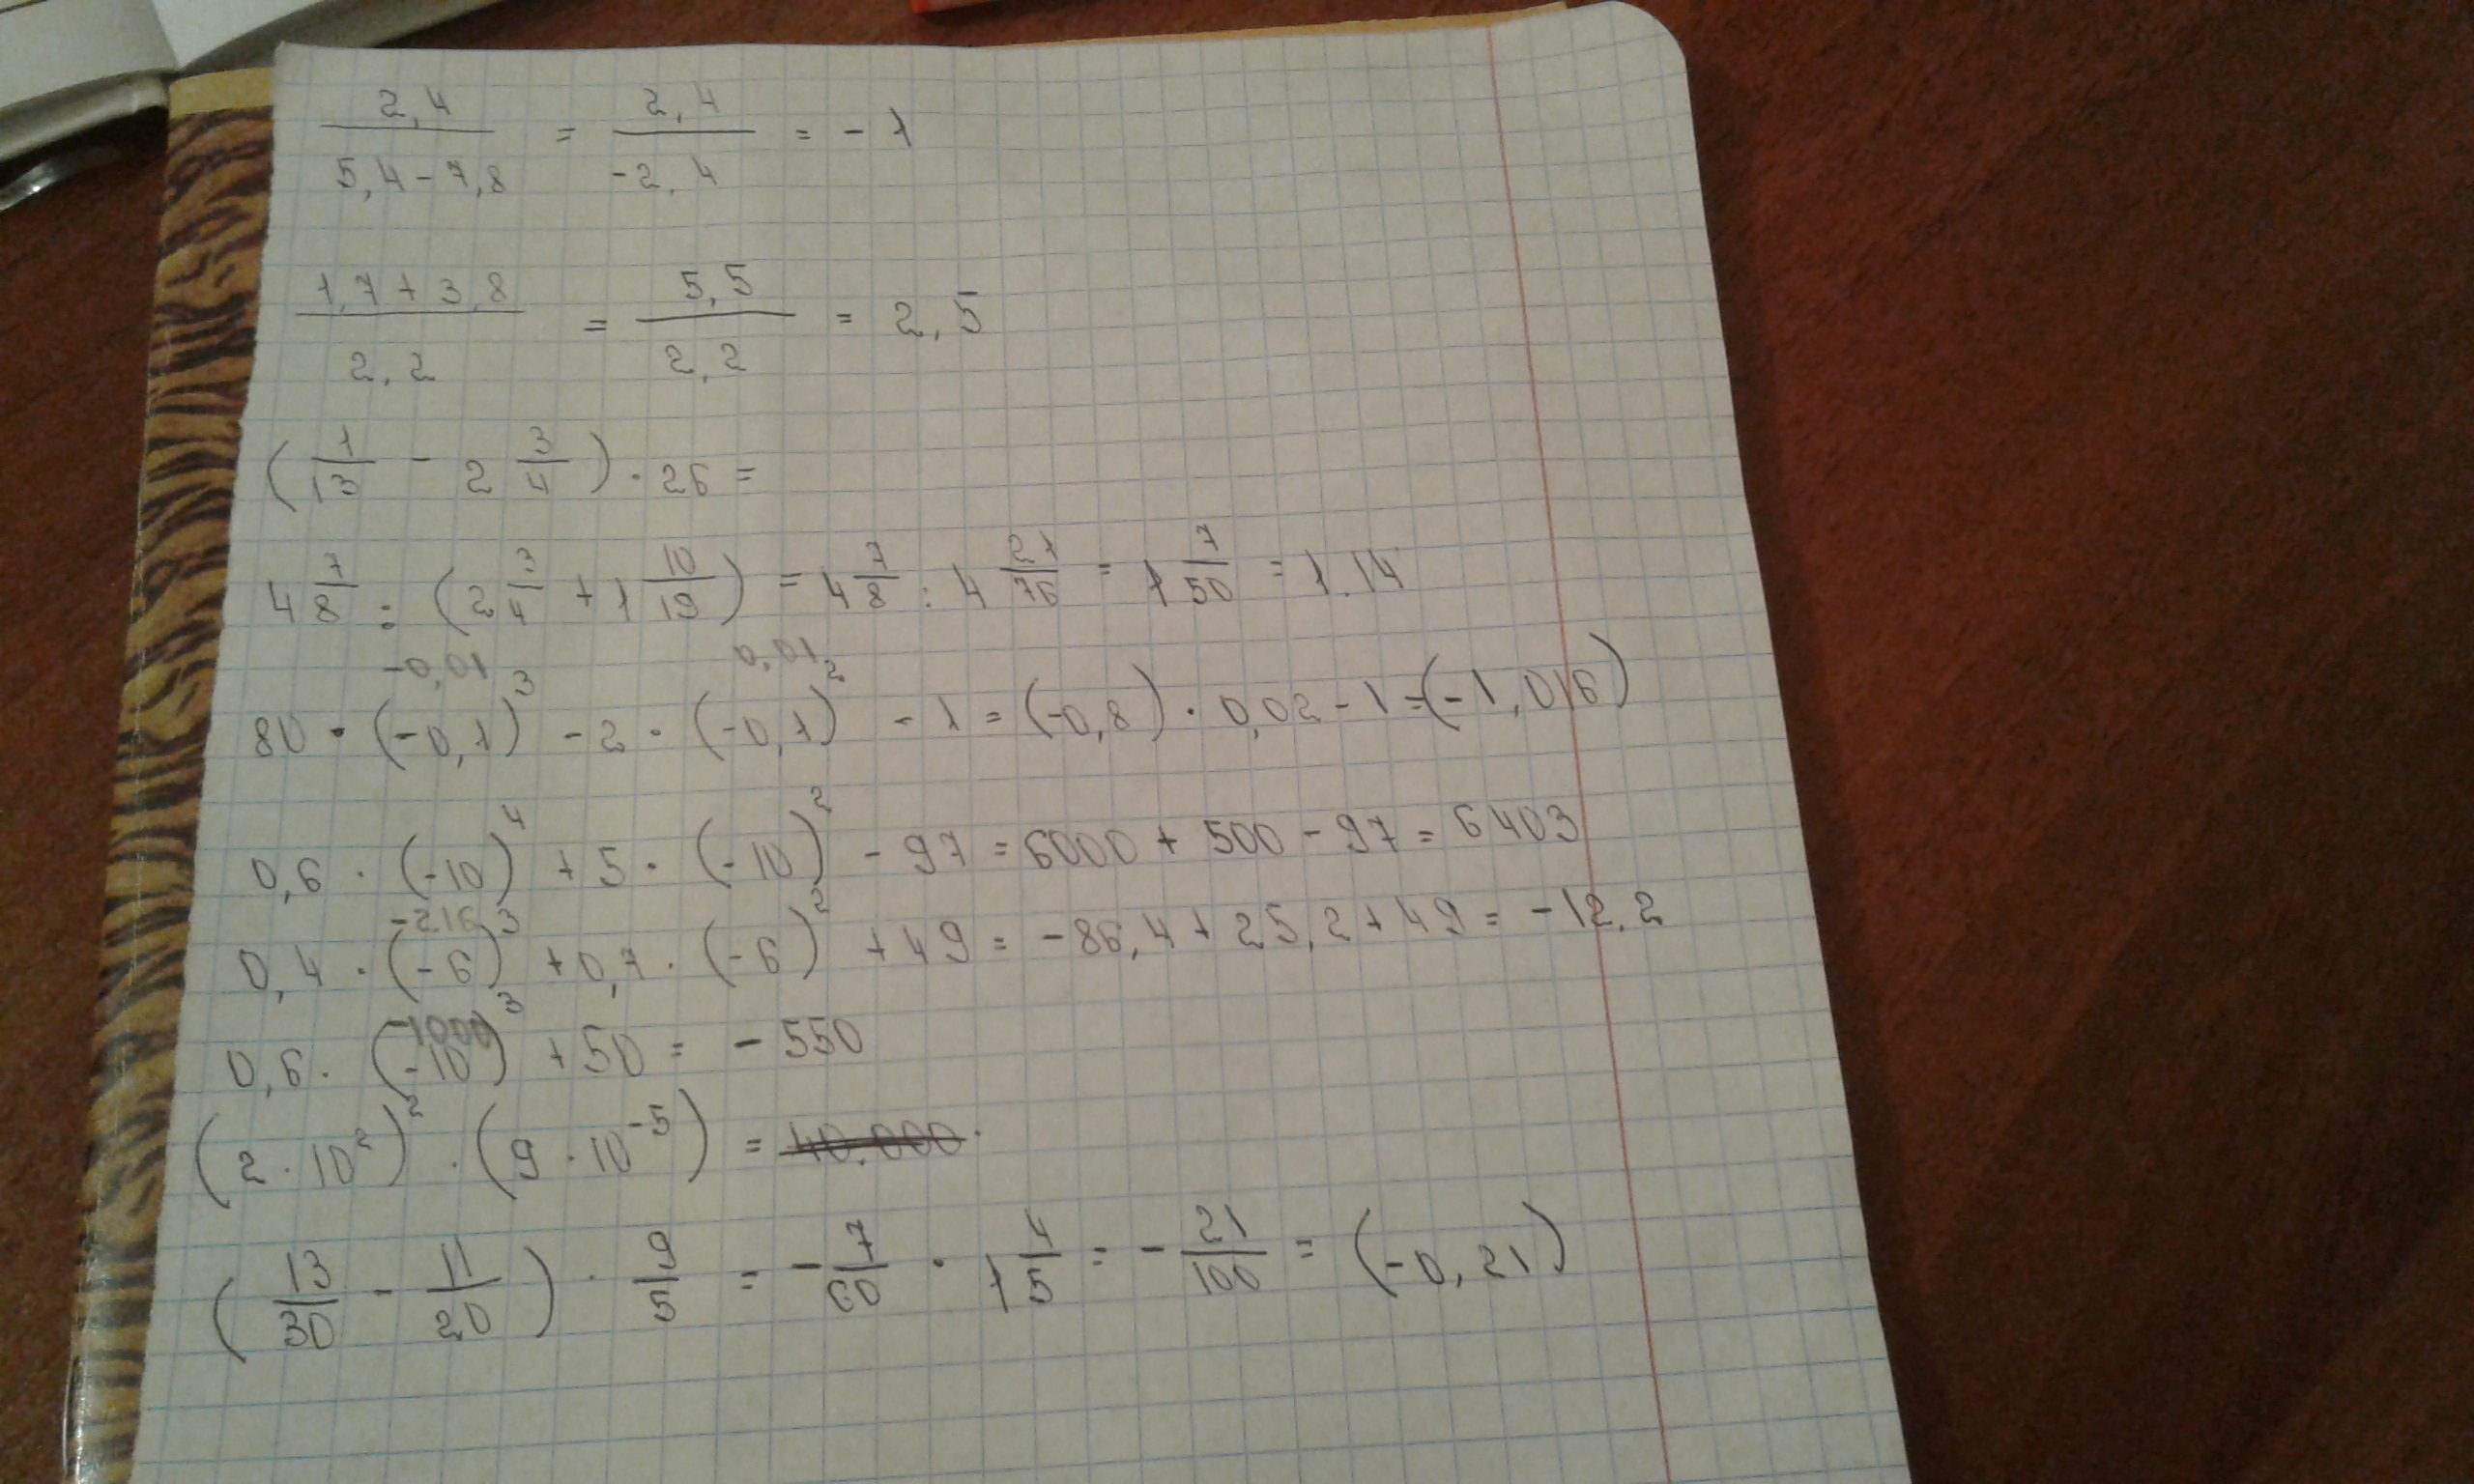 2,4 / 5,4 - 7,8 = 2,4 / -2,4 = -1
1,7 + 3,8 / 2,2 = 5,5 / 2,2 = 2,5
(1/13 - 2 3/4) · 26 =
4 7/8 : (2 3/4 + 1 10/19) = 4 7/8 : 4 21/76 = 1 7/50 = 1.14
-0,01 0,01
80 · (-0,1)³ - 2 · (-0,1)² - 1 = (-0,8) · 0,02 - 1 = (-1,016)
0,6 · (-10)⁴ + 5 · (-10)² - 97 = 6000 + 500 - 97 = 6403
-216
0,4 · (-6)³ + 0,7 · (-6)² + 49 = -86,4 + 25,2 + 49 = -12,2
-1000
0,6 · (-10)³ + 50 = -550
(2 · 10²)² · (9 · 10⁻⁵) = 40.000
(13/30 - 11/20) · 9/5 = -7/60 · 1 4/5 = -21/100 = (-0,21)